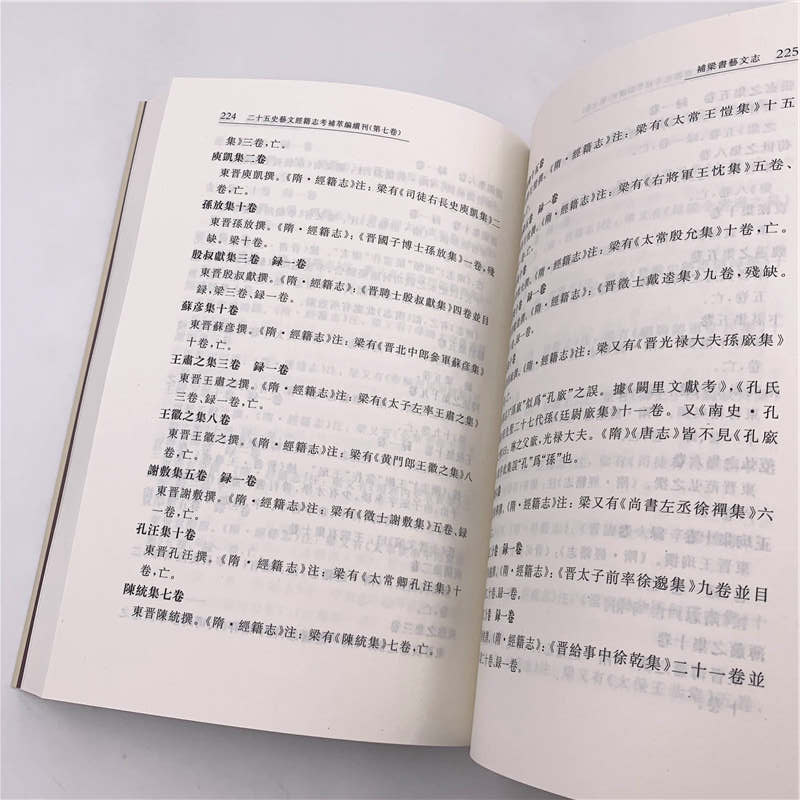 224 二十五史藝文經籍志考補萃編續刊(第七卷)
集》三卷,亡。
庾凱集二卷
東晉庾凱撰。《隋·經籍志》注:梁有《司徒右長史庾凱集》二
卷,亡。
孫放集十卷
東晉孫放撰。《隋·經籍志》:《晉國子博士孫放集》一卷,殘
缺。梁十卷。
殷叔獻集三卷 録一卷
東晉殷叔獻撰。《隋·經籍志》:《晉聘士殷叔獻集》四卷並目
録,梁三卷、録一卷。
蘇彦集十卷
東晉蘇彦撰。《隋·經籍志》注:梁有《晉北中郎參軍蘇彦集》
十卷,亡。
王肅之集三卷 録一卷
東晉王肅之撰。《隋·經籍志》注:梁有《太子左率王肅之集》
三卷、録一卷,亡。
王徽之集八卷
東晉王徽之撰。《隋·經籍志》注:梁有《黄門郎王徽之集》八
卷,亡。
謝敷集五卷 録一卷
東晉謝敷撰。《隋·經籍志》注:梁有《徵士謝敷集》五卷、録
一卷,亡。
孔汪集十卷
東晉孔汪撰。《隋·經籍志》注:梁有《太常卿孔汪集》十
卷,亡。
陳統集七卷
東晉陳統撰。《隋·經籍志》注:梁有《陳統集》七卷,亡。
補梁書藝文志 225
《隋·經籍志》注:梁有《太常王愷集》十五
卷 録一卷
《隋·經籍志》注:梁有《右將軍王忱集》五卷、
卷,亡。
《隋·經籍志》注:梁有《太常殷允集》十卷,亡。
録一卷
《隋·經籍志》:《晉徵士戴逵集》九卷,殘缺。
録一卷。
《隋·經籍志》注:梁又有《晉光禄大夫孫廞集》
孫廞”似爲“孔廞”之誤。據《闕里文獻考》,《孔氏
二十七代孫《廷尉廞集》十一卷。又《南史·孔
琳之父廞,光禄大夫。《隋》《唐志》皆不見《孔廞
誤“孔”爲“孫”也。
《隋·經籍志》注:梁又有《尚書左丞徐禪集》六
録一卷
《隋·經籍志》:《晉太子前率徐邈集》九卷並目
二十卷、録一卷。
卷 録一卷
《隋·經籍志》:《晉給事中徐乾集》二十一卷並
二十卷、録一卷。